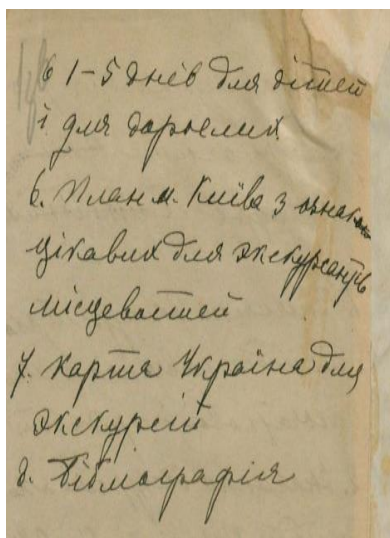 в 1-5 днів для дітей
і для дорослих.
6. План м. Київа з ознак.
цікавих для экскурсантів
місцевостей
7. Карта Україна для
экскурсій
8. Бібліографія